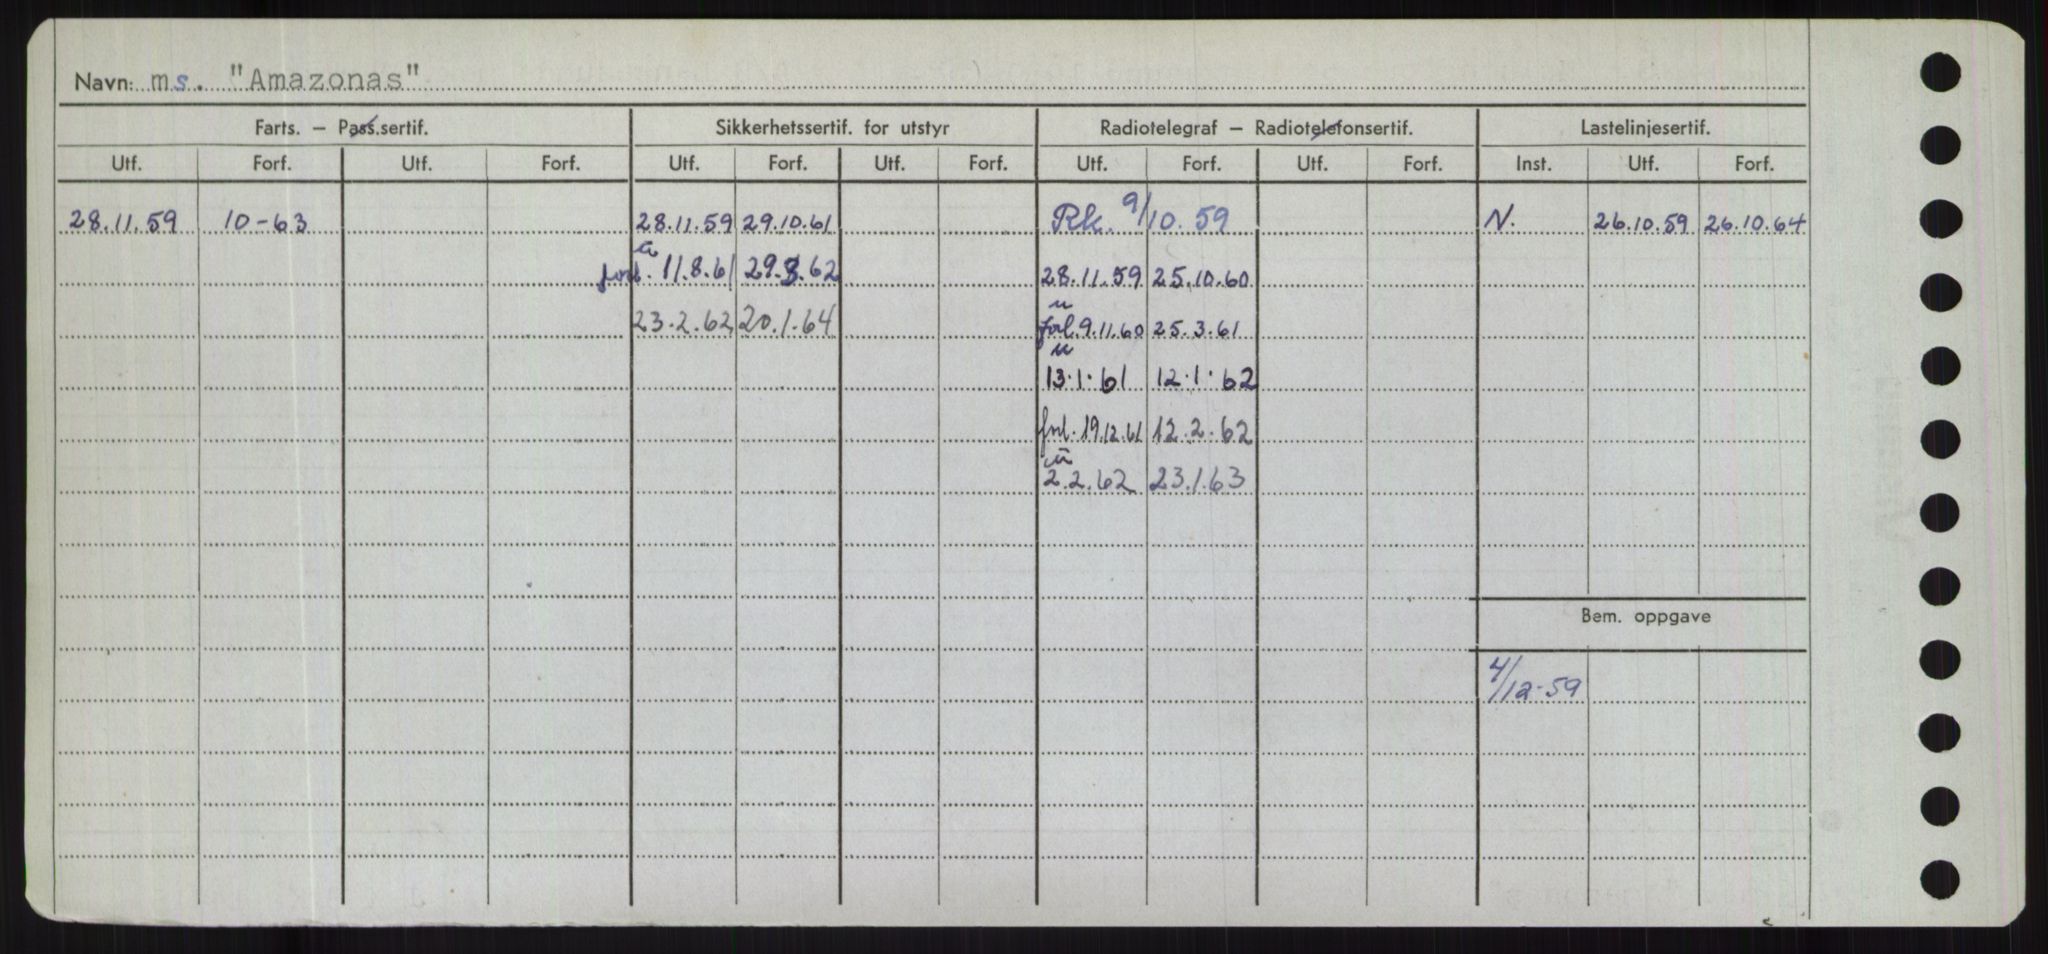 Navn: ms. "Amazonas"
Farts. – Pass.sertif. Sikkerhetssertif. for utstyr Radiotelegraf – Radiotelefonsertif. Lastelinjesertif.
Utf. Forf. Utf. Forf. Utf. Forf. Utf. Forf. Utf. Forf. Utf. Forf. Inst. Utf. Forf.
28.11.59 10-63 28.11.59 29.10.61 Rk. 9/10.59 N. 26.10.59 26.10.64
forl. 11.8.61 29.3.62 28.11.59 25.10.60
23.2.62 20.1.64 forl. 9.11.60 25.3.61
13.1.61 12.1.62
forl. 19.12.61 12.2.62
2.2.62 23.1.63
Bem. oppgave
4/12-59